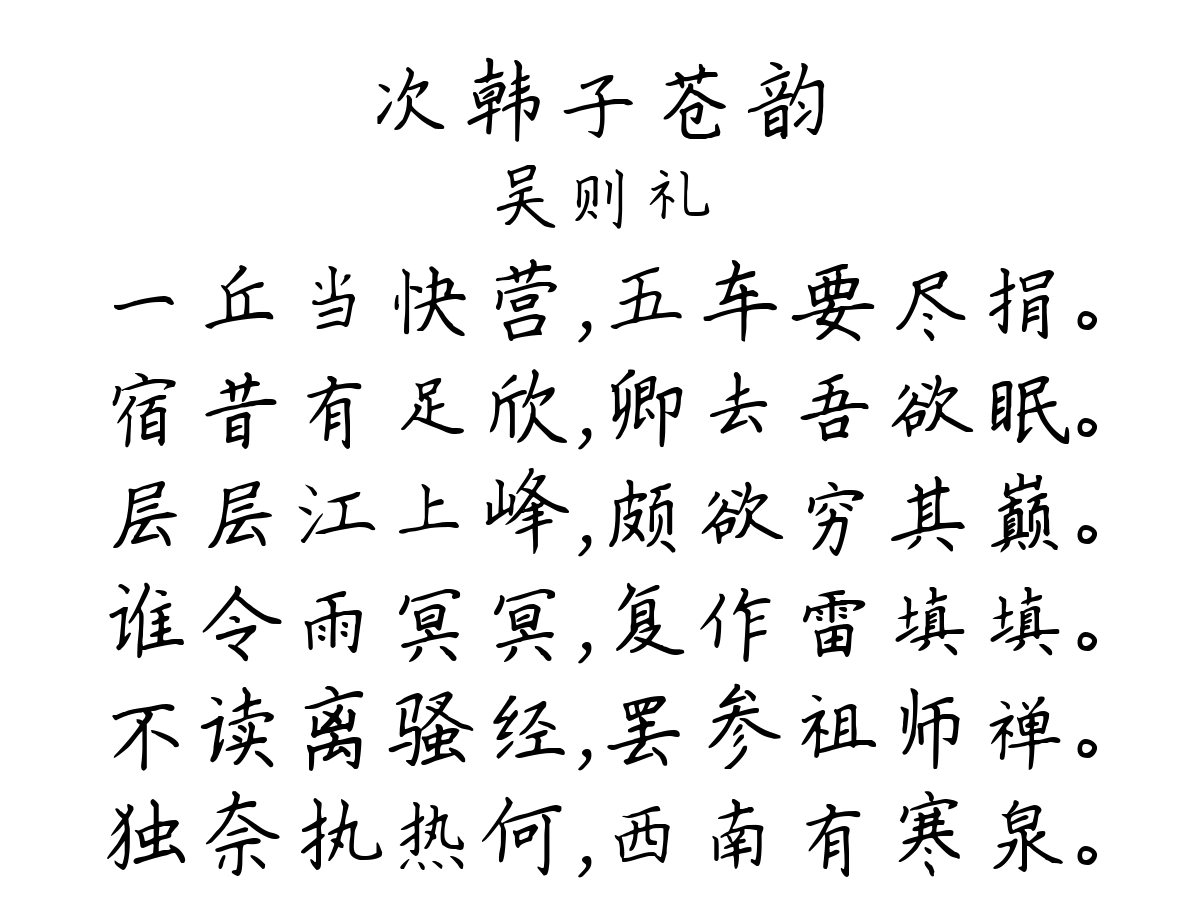 次韩子苍韵
吴则礼
一丘当快营,五车要尽捐。
宿昔有足欣,卿去吾欲眠。
层层江上峰,颇欲穷其巅。
谁令雨冥冥,复作雷填填。
不读离骚经,罢参祖师禅。
独奈执热何,西南有寒泉。